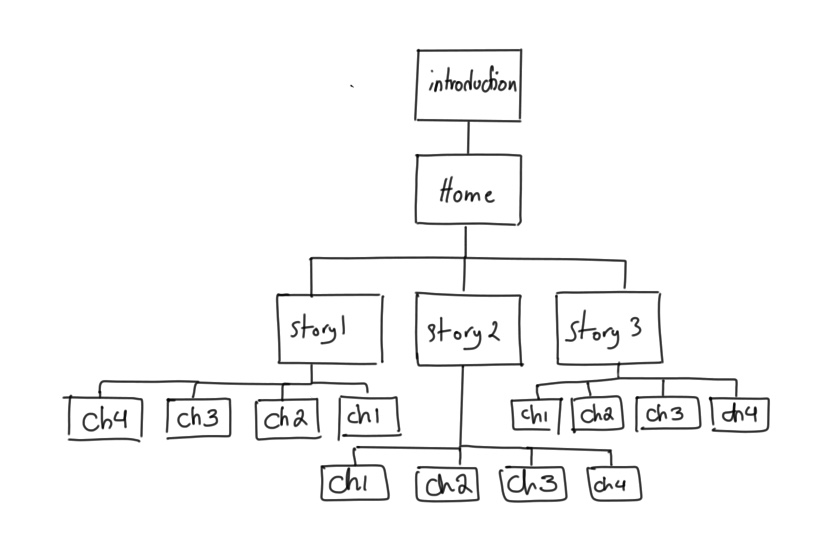 introduction
Home
story1
story2
story 3
ch4
ch3
ch2
ch1
ch1
ch2
ch3
ch4
ch1
ch2
ch3
ch4